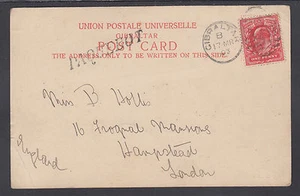 UNION POSTALE UNIVERSELLE
GIBRALTAR
POST CARD
THE ADDRESS ONLY TO BE WRITTEN ON THIS SIDE.
PAQUEBOT
GIBRALTAR
B
17 MR
Miss B Hollis
16 Frognal Mansions
Hampstead
London
England